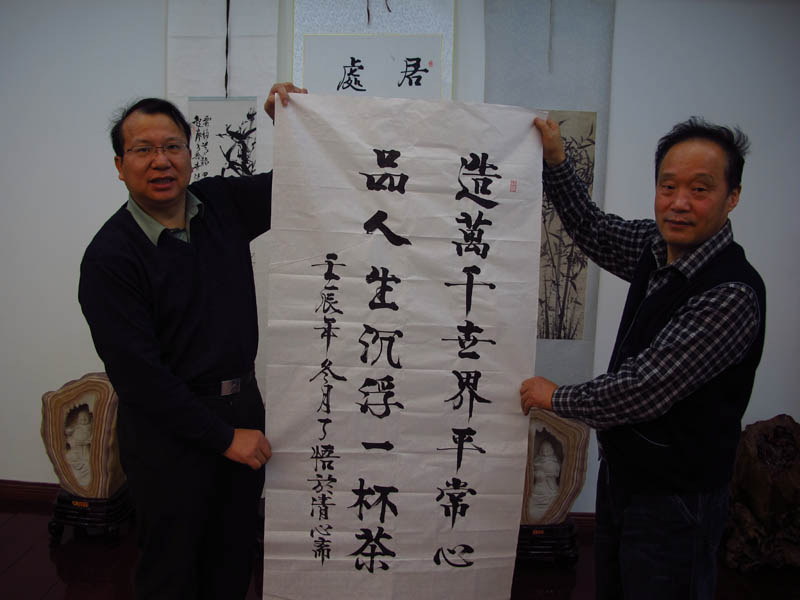 造萬千世界平常心
品人生沉浮一杯茶
壬辰年冬月了悟於清心斋
居處